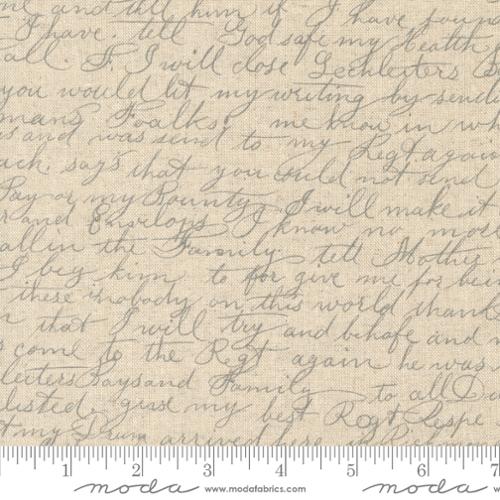 and tell him if I have found
I have. tell God safe my Health
all. F. I will close Lechleiters
you would let my writing by send
mans Foalks! me know in wh
us and was send to my Regt again
ack. say's that you could not send
Pay or my Bounty I will make it
r and Envelops I know no more
all in the Family. tell Mother
I beg him to for give me for bei
there is nobody on this world thank
n that I will try and behafe and
s come to the Regt again he was
leiters Says and Family to all
listed. give my best Regt Respe
t my Drum arrived here in
1 2 3 4 5 6 7
moda www.modafabrics.com moda